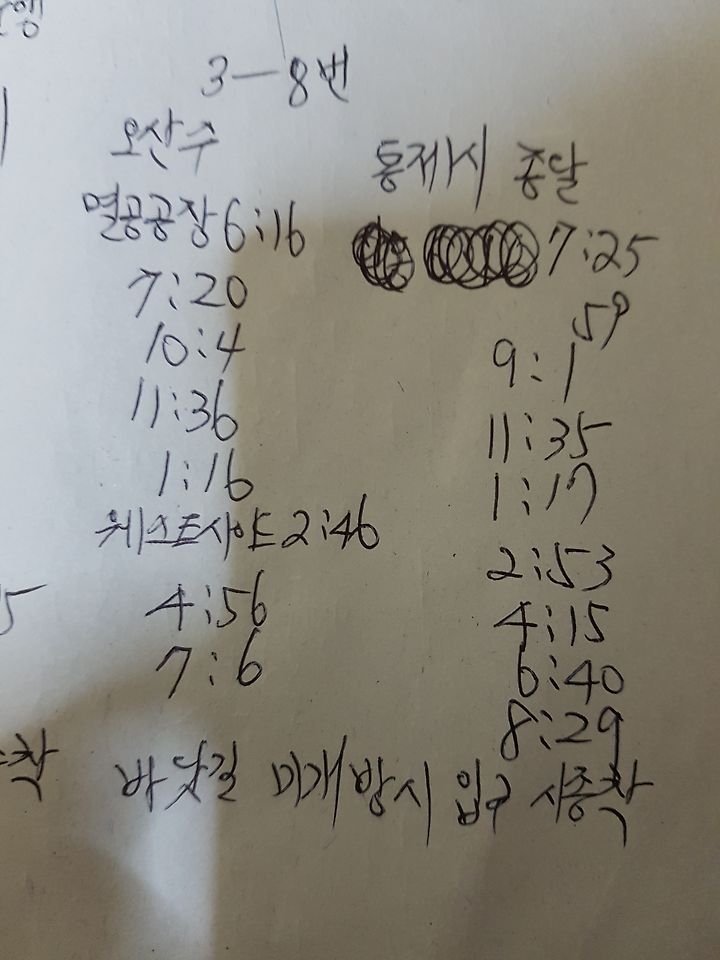 행
3-8번
오산수
멸공공장 6:16
7:20
10:4
11:36
1:16
2:46
4:56
7:6
종달
7:25
59
9:1
11:35
1:17
2:53
4:15
6:40
8:29
바닷길 미개방시 입구 시종착
5
착